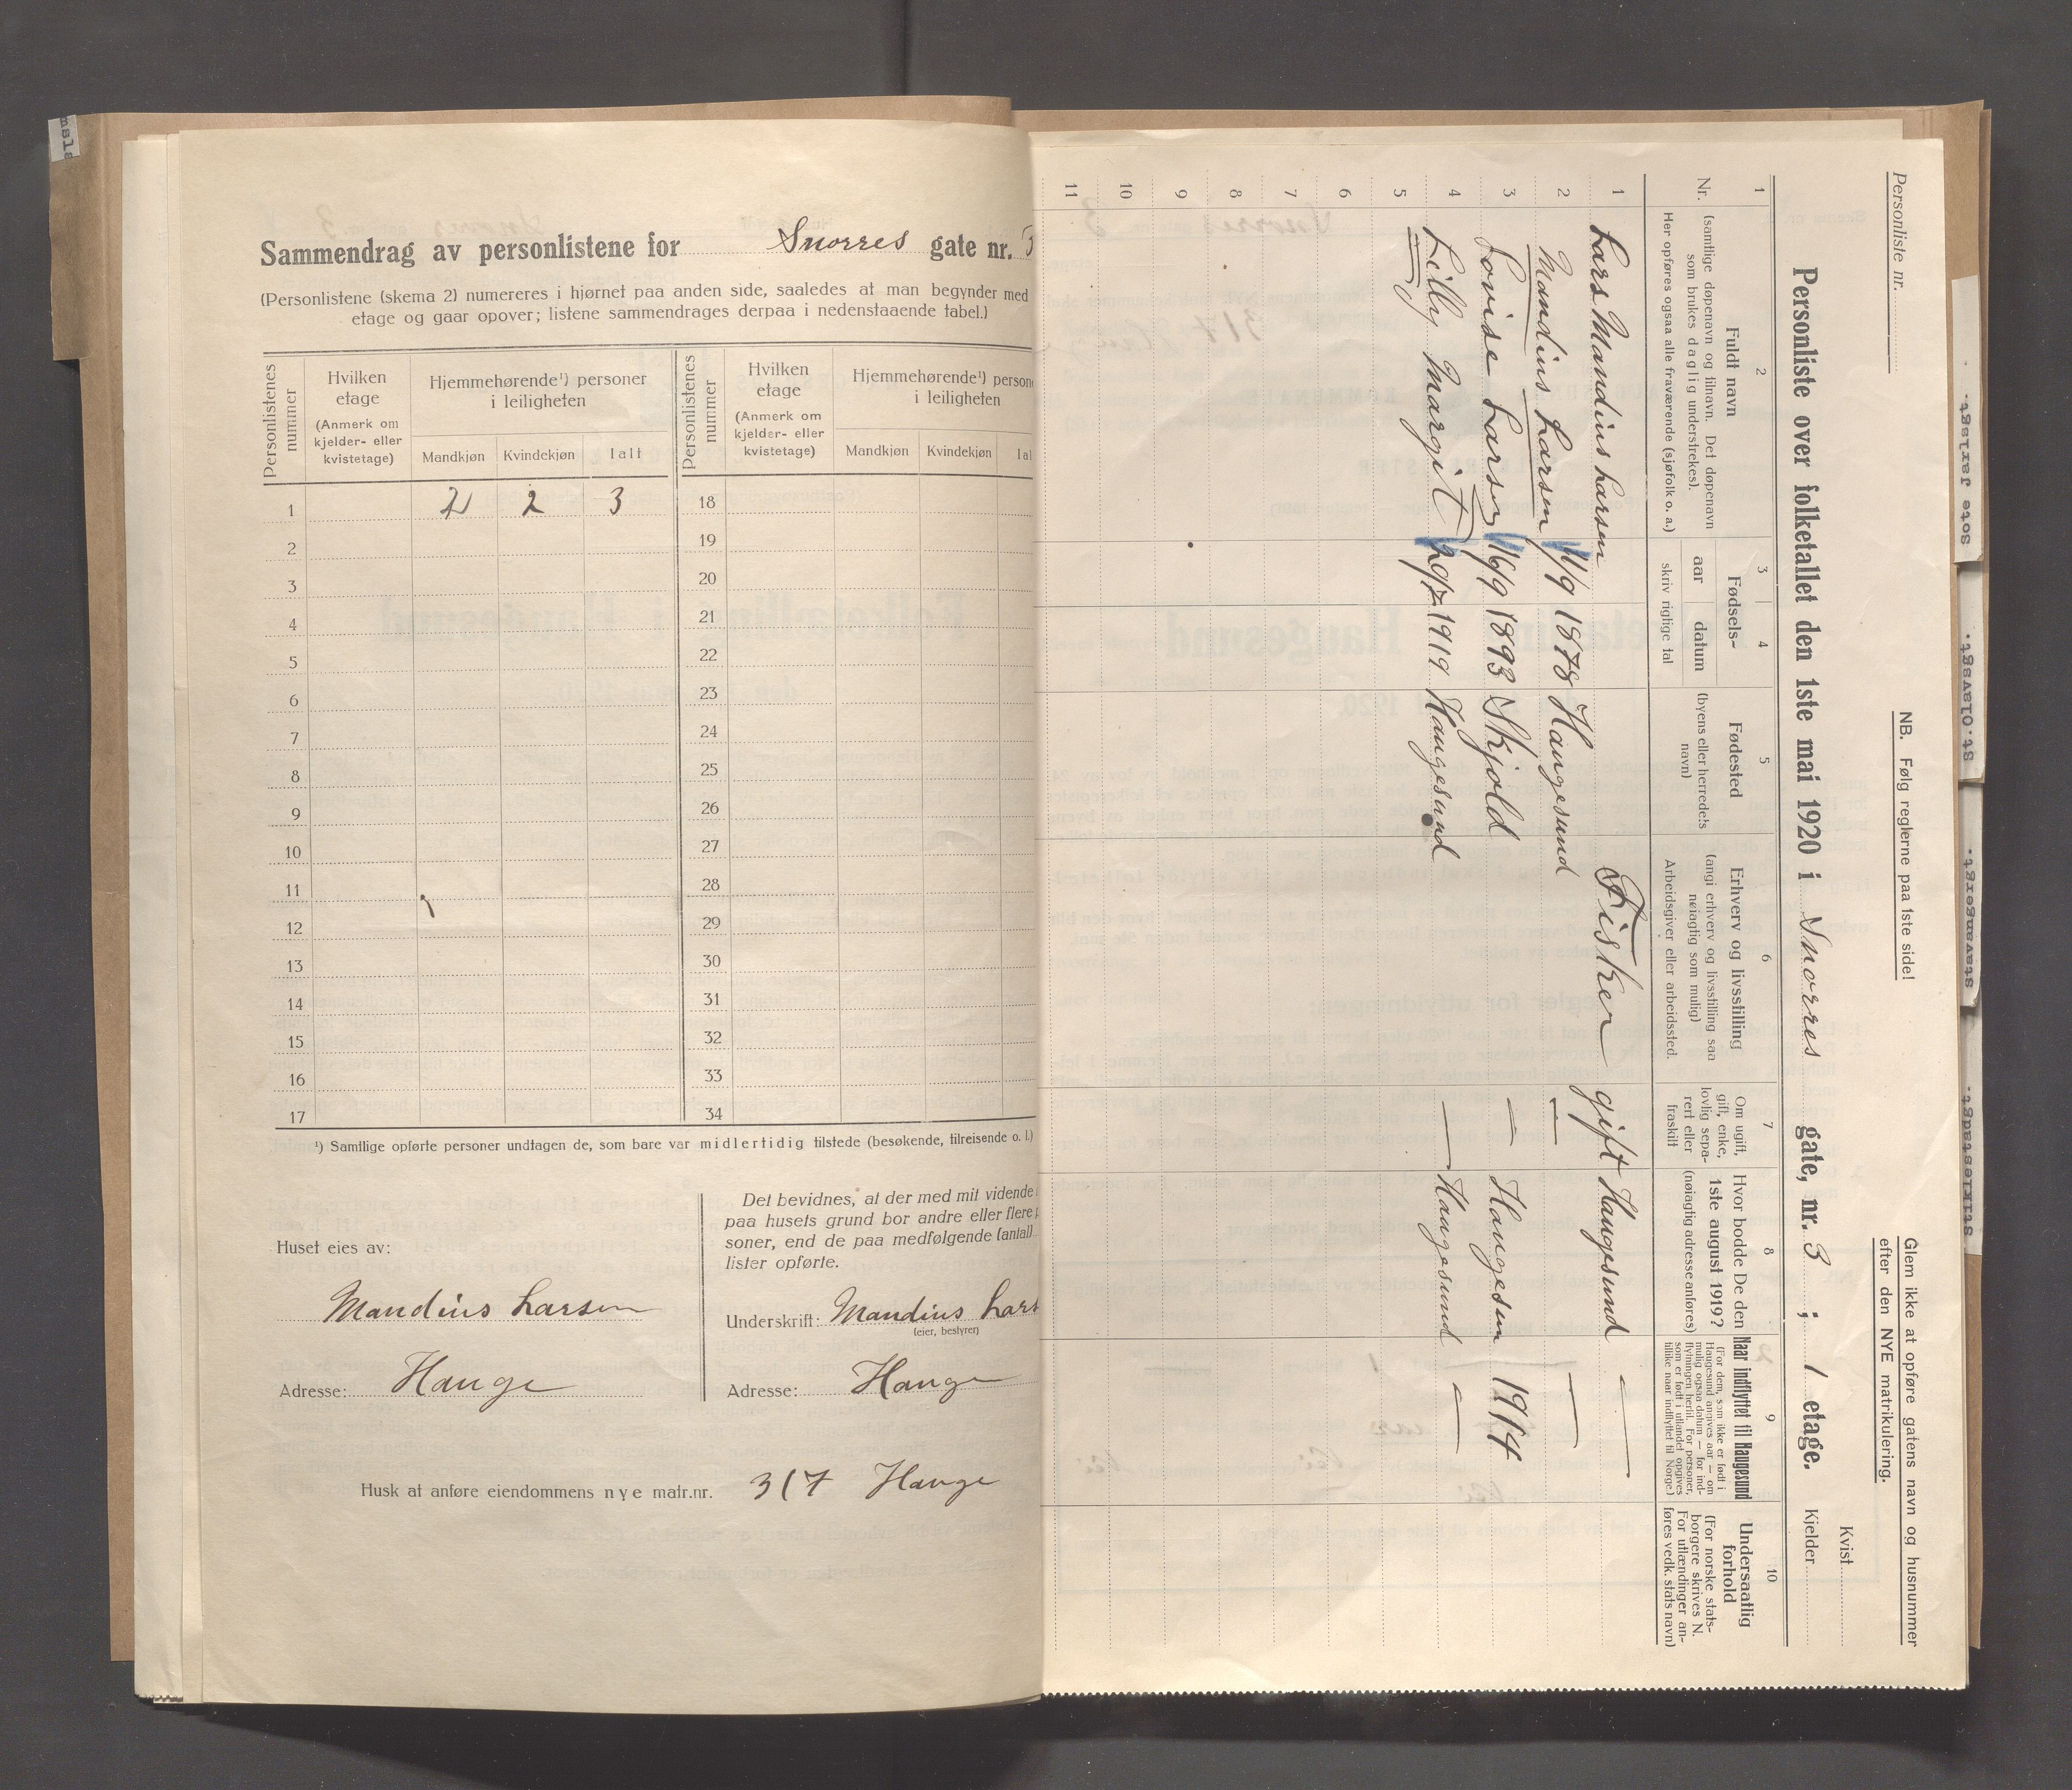 Sammendrag av personlistene for Snorres gate nr. 3
(Personlistene (skema 2) numereres i hjørnet paa anden side, saaledes at man begynder med
etage og gaar opover; listene sammendrages derpaa i nedenstaaende tabel.)
Personlistenes nummer
Hvilken etage
(Anmerk om kjelder- eller kvistetage)
Hjemmehørende¹) personer i leiligheten
Mandkjøn Kvindekjøn Ialt
Personlistenes nummer
Hvilken etage
(Anmerk om kjelder- eller kvistetage)
Hjemmehørende¹) persone
i leiligheten
Mandkjøn Kvindekjøn Ial
1 2 3 18
2 19
3 20
4 21
5 22
6 23
7 24
8 25
9 26
10 27
11 28
12 29
13 30
14 31
15 32
16 33
17 34
¹) Samtlige opførte personer undtagen de, som bare var midlertidig tilstede (besøkende, tilreisende o. l.)
Huset eies av:
Mandius Larsen
Adresse: Hauge
Det bevidnes, at der med mit vidende
paa husets grund bor andre eller flere
soner, end de paa medfølgende (antall)
lister opførte.
Underskrift: Mandius Lars
(eier, bestyrer)
Adresse: Hauge
Husk at anføre eiendommens nye matr.nr. 317 Hauge
Personliste nr.
NB. Følg reglerne paa 1ste side!
Glem ikke at opføre gatens navn og husnummer
efter den NYE matrikulering.
Personliste over folketallet den 1ste mai 1920 i Snorres gate, nr. 3 ; 1 etage.
Kvist
Kjelder
1 2 3 4 5 6 7 8 9 10
Nr.
Fuldt navn
(samtlige døpenavn og tilnavn. Det døpenavn
som brukes daglig understrekes).
Her opføres ogsaa alle fraværende (sjøfolk o. a.)
Fødsels-
aar datum
skriv rigtige tal
Fødested
(byens eller herredets
navn)
Erhverv og livsstilling
(angi erhverv og livsstilling saa
nøiagtig som mulig)
Arbeidsgiver eller arbeidssted.
Om ugift,
gift, enke,
lovlig sepa-
rert eller
fraskilt
Hvor bodde De den
1ste august 1919?
(nøiagtig adresse anføres)
Naar indflyttet til Haugesund
(For dem, som ikke er født i
Haugesund angives aar — om
mulig ogsaa datum — for ind-
flytningen hertil. For personer,
som er født i utlandet opgives
tillike naar indflyttet til Norge.)
Undersaatlig
forhold
(For norske stats-
borgere skrives N.
For utlændinger an-
føres vedk. stats navn)
1 Lars Mandius Larsen Fisker gift Haugesund —
2 Mandius Larsen 11/9 1878 Haugesund — —
3 Lovise Larsen 16/9 1893 Skjold — Haugesun 1914
4 Lilly Margit 20/7 1919 Haugesund — Haugesund —
5
6
7
8
9
10
11
Sote Jarlsgt.
St.Olavsgt.
Stavangergt.
Stiklestadgt.